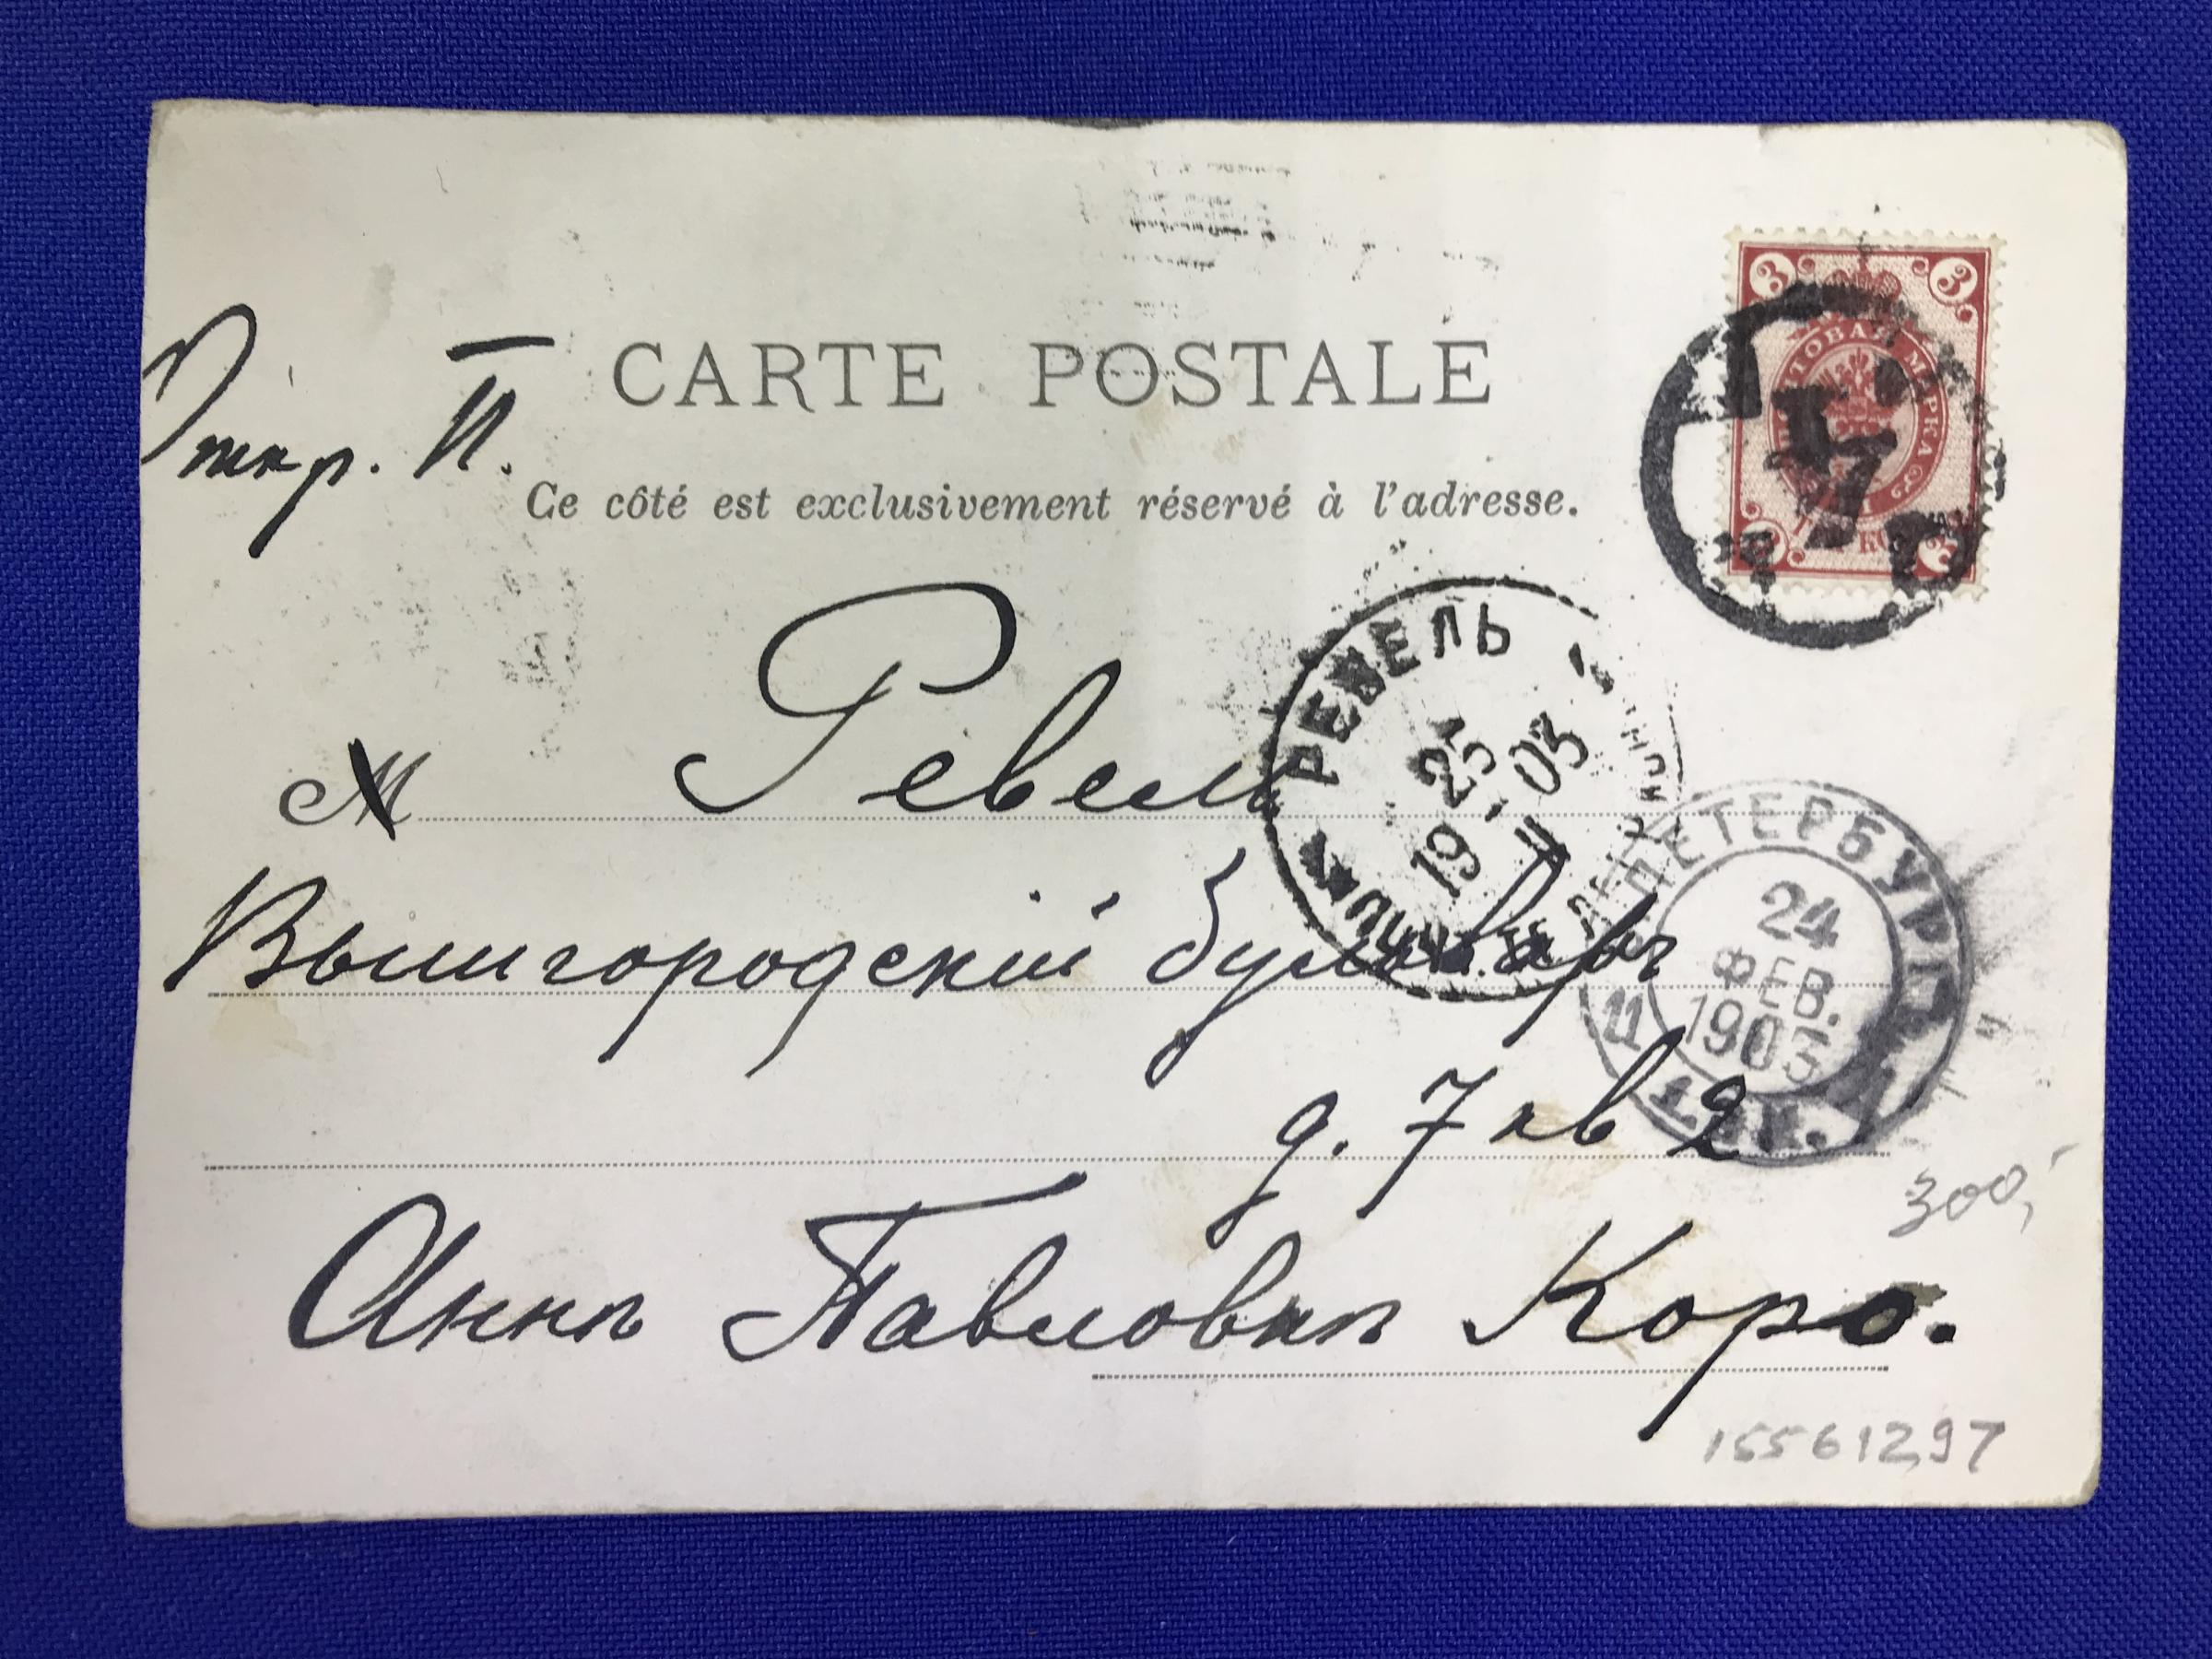 CARTE POSTALE
Откр. П.
Ce côté est exclusivement réservé à l'adresse.
3 3
МАРКА
РЕВЕЛЬ
25
19 II 03
M Ревель
ПЕТЕРБУРГ
24
ФЕВ.
1903
Вышгородский бульваръ
д. 7 кв 2
300,-
Аннѣ Павловнѣ Коро.
15561297